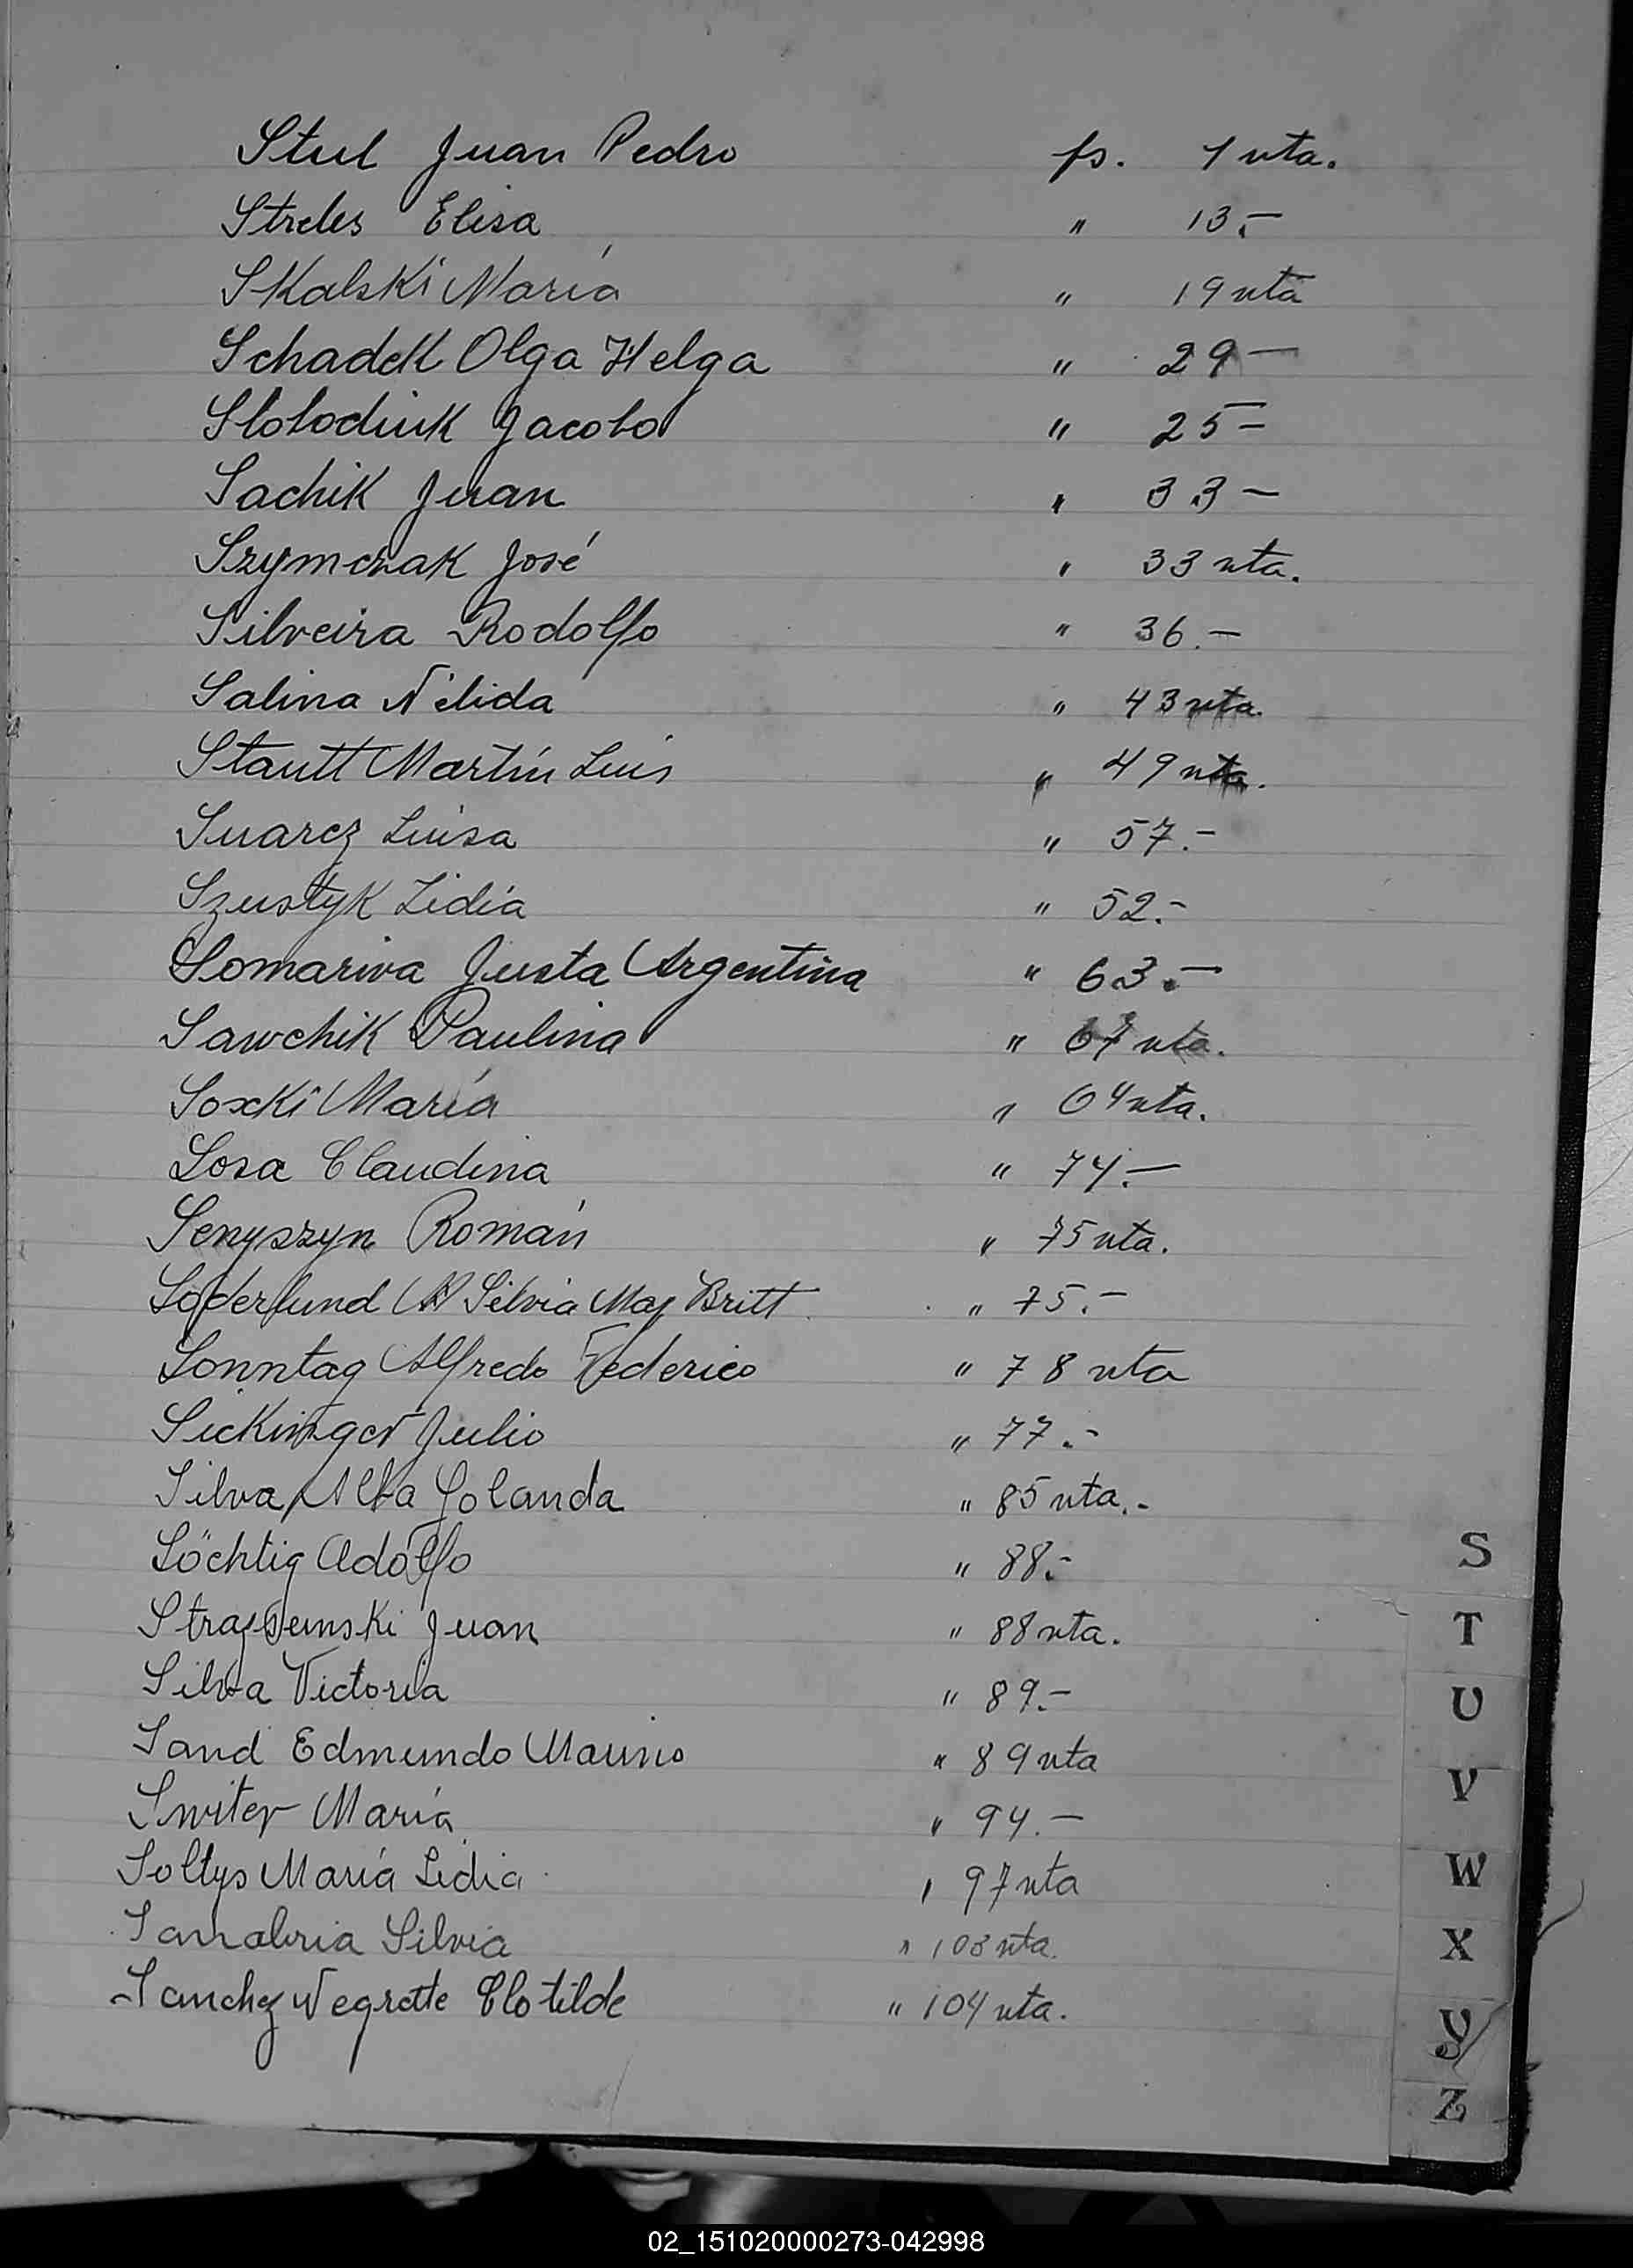 Stul Juan Pedro fs. 1 vta.
Streles Elisa " 13.-
SKalsKi María " 19 vta
SchadeK Olga Helga " 29 -
SlolodiuK Jacobo " 25 -
SachiK Juan " 33 -
SzymczaK José " 33 vta.
Silveira Rodolfo " 36.-
Salina Nélida " 43 vta.
Stautt Martín Luis " 49 vta.
Suarez Luisa " 57.-
SzustyK Lidia " 52.-
Somariva Justa Argentina " 63.-
SawchiK Paulina " 67 vta.
María " 64 vta.
Sosa Claudina " 74.-
Senyszyn Román " 75 vta.
Söderlund Silvia May Britt " 75.-
Sonntag Alfredo Federico " 78 vta
SicKinger Julio " 77.-
Silva, Alba Yolanda " 85 vta.-
Söchtig Adolfo " 88.-
Juan " 88 vta.
Silva Victoria " 89.-
Sand Edmundo " 89 vta
Switer María " 94.-
Soltys María Lidia " 97 vta
Sanabria Silvia " 103 vta.
Sanchez Negrette Clotilde " 104 vta.
S
T
U
V
W
X
Y
Z
02_151020000273-042998